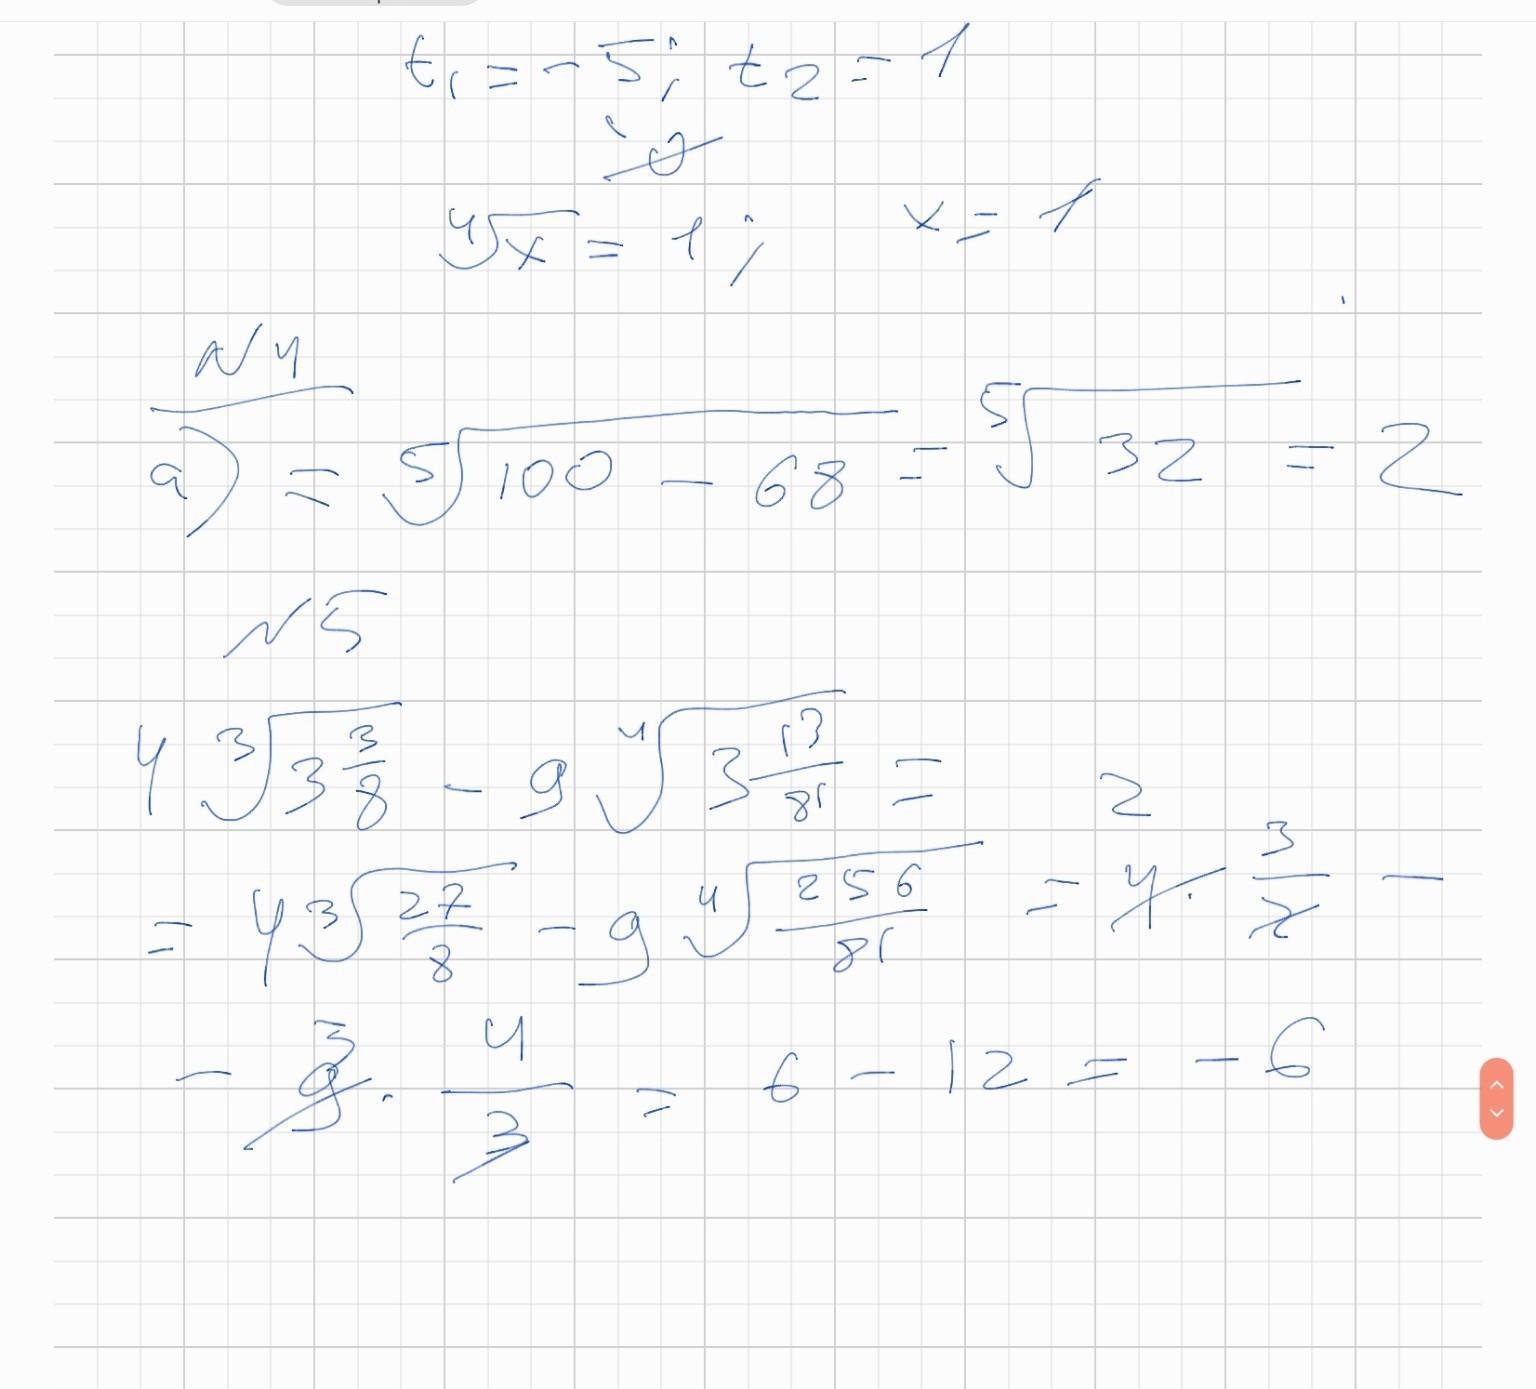 t₁ = -5; t₂ = 1
∅
⁴√x = 1; x = 1
N4
a) = ⁵√(100 - 68) = ⁵√32 = 2
N5
4 ³√(3 3/8) - 9 ⁴√(3 13/81) =
= 4 ³√(27/8) - 9 ⁴√(256/81) = 4̸ ² · 3/2̸ -
- 9̸ ³ · 4/3̸ = 6 - 12 = -6